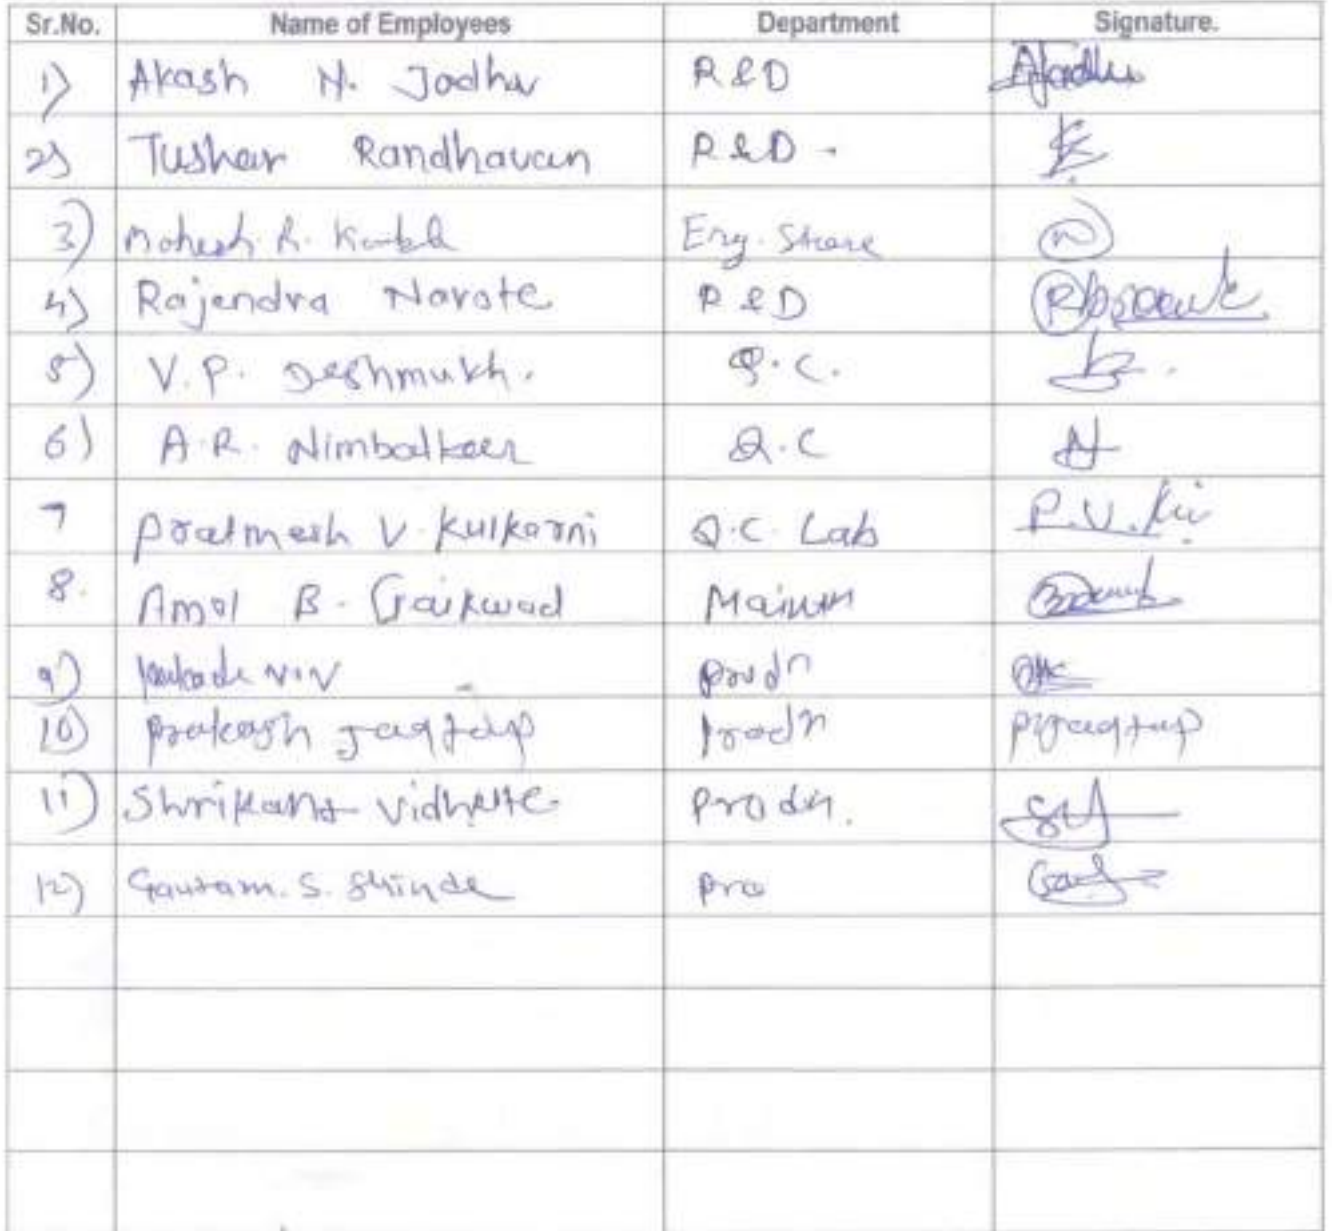 Sr.No. Name of Employees Department Signature.
1) Akash N. Jadhav R&D AJadhav
2) Tushar Randhavan R&D -
3) Mahesh R. Kamble Eng. Store
4) Rajendra Narote R&D
5) V.P. Deshmukh. Q.C.
6) A.R. Nimbalkar Q.C
7 Pratmesh V. Kulkarni Q.C. Lab P.V.
8. Amol B. Gaikwad
9) N.V prodn
10) Prakash Jagtap Prodn PJagtap
11) Shrikant Vidhate. Prodn.
12) Gautam. S. Shinde pro